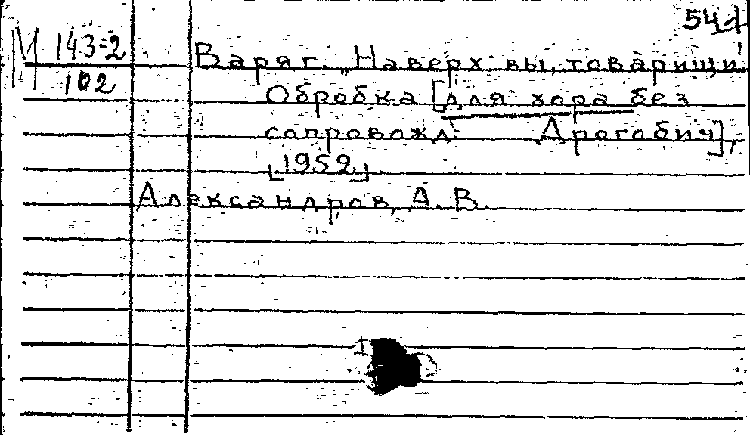 54
М 143-2
102
Варяг. „Наверх вы, товарищи!
Обробка [для хора без
сопровожд. Дрогобич],
[1952]
Александров, А. В.